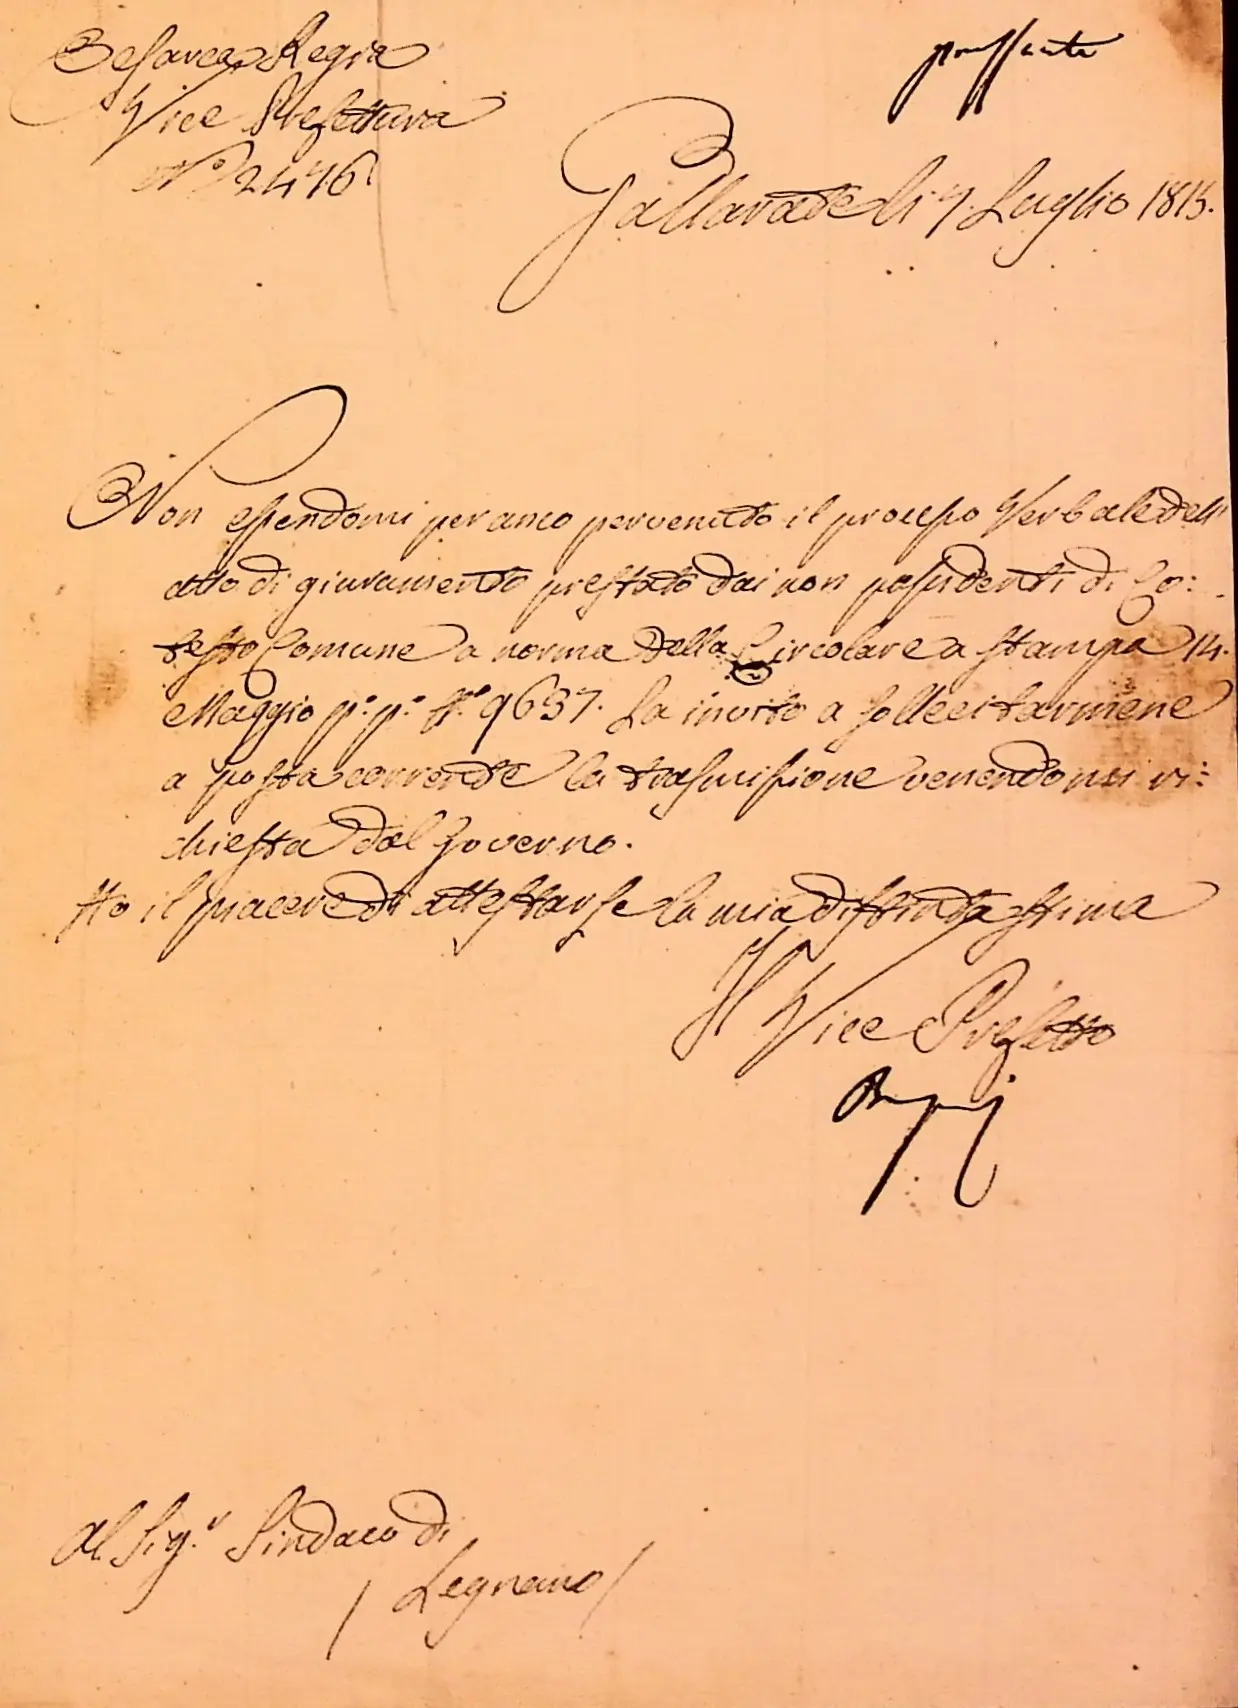 Cesarea Regia
Vice Prefettura
N.° 2476
pressante
Gallarate li 7. Luglio 1815.
Non essendomi per anco pervenuto il processo Verbale dell'
atto di giuramento prestato dai non possidenti di Co:
testo Comune a norma della Circolare a stampa 14.
Maggio p.° p.° N.° 9637. La invito a sollecitarmene
a posta corrente la trasmissione venendomi ri:
chiesta dal Governo.
Ho il piacere di attestarle la mia distinta stima
Il Vice Prefetto
Al Sig.r Sindaco di
/ Legnano /